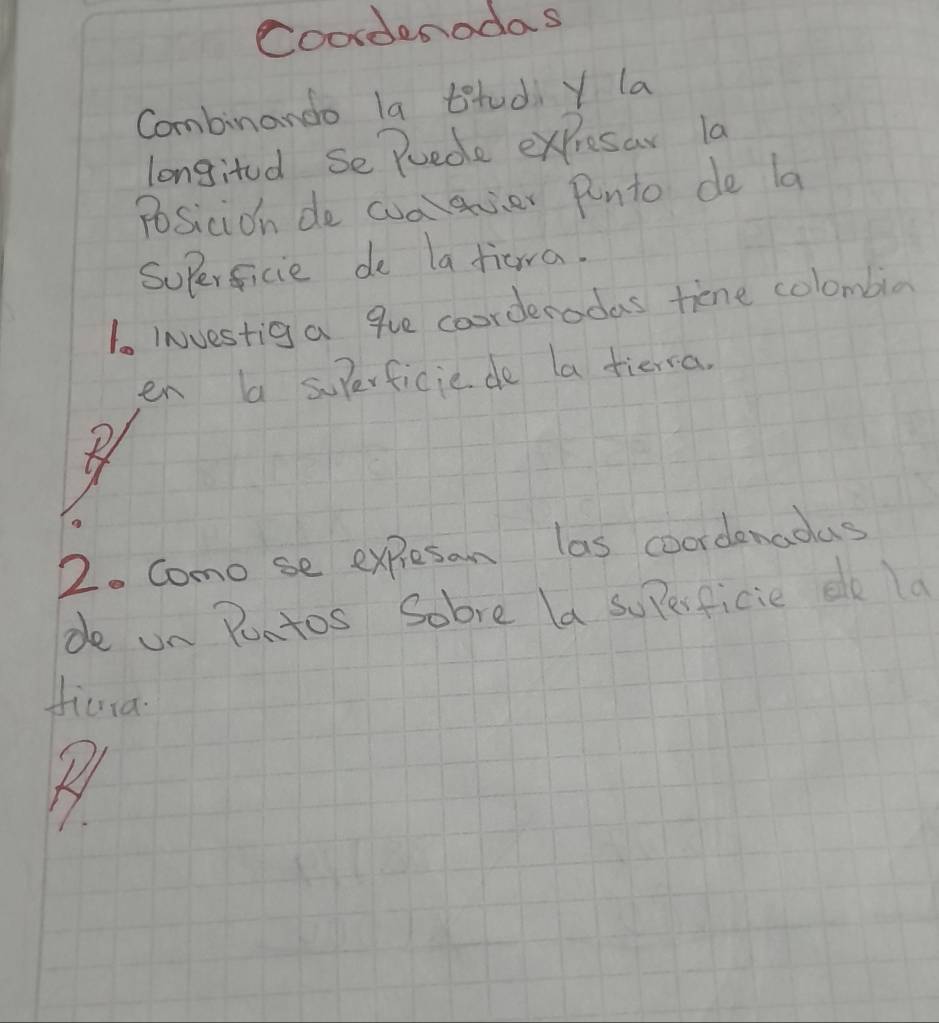 Coordenadas
Combinando la titud y la
longitud se Puede expresar la
Posición de cualquier Punto de la
Superficie de la tierra.
1. Investiga que coordenadas tiene colombia
en la superficie de la tierra.
R/
2. Como se expresan las coordenadas
de un Puntos Sobre la superficie de la
tierra.
R/.